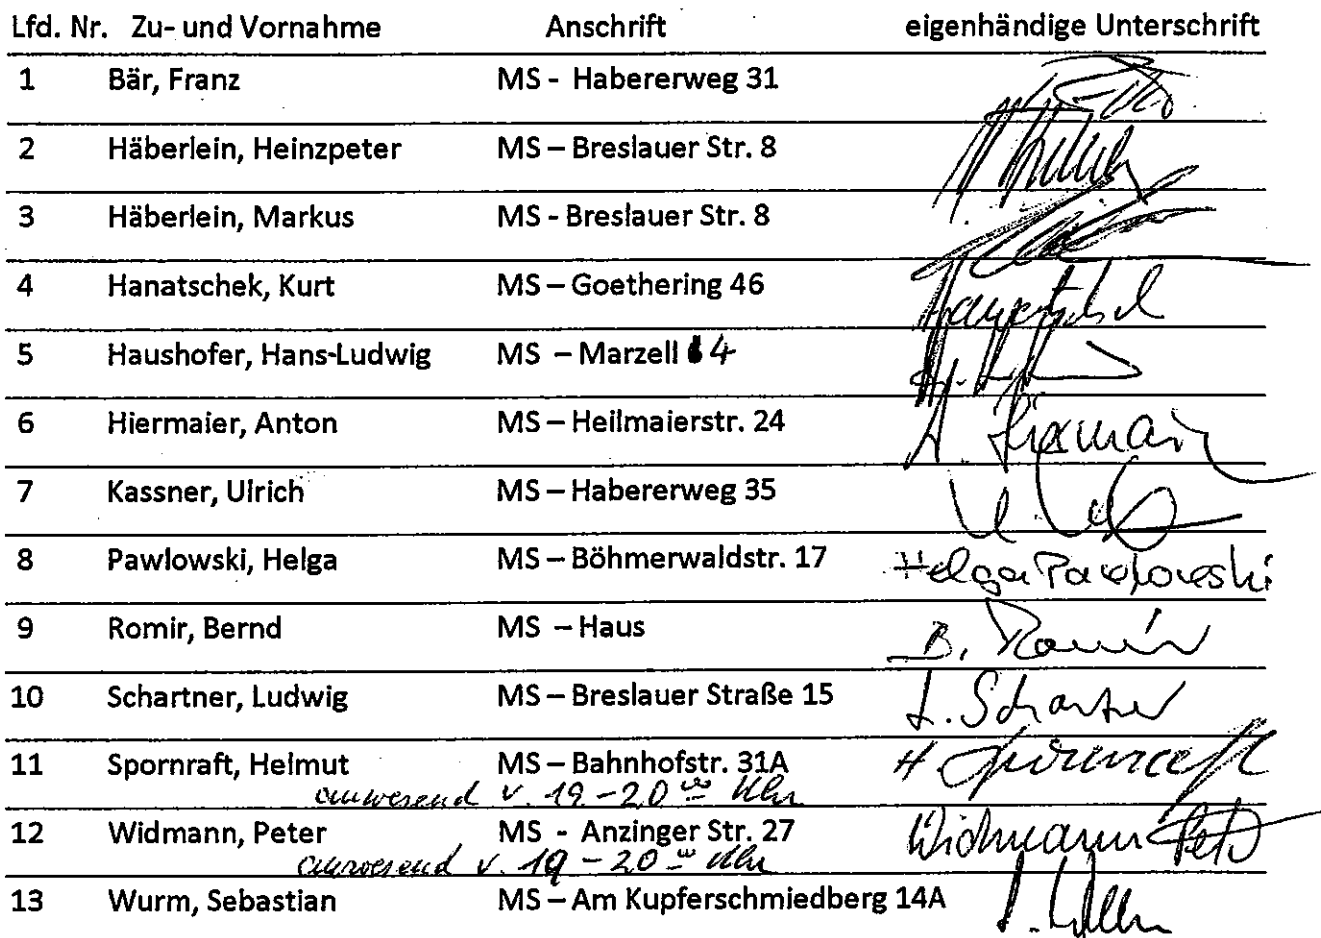 Lfd. Nr. Zu- und Vornahme Anschrift eigenhändige Unterschrift
1 Bär, Franz MS - Habererweg 31
2 Häberlein, Heinzpeter MS – Breslauer Str. 8
3 Häberlein, Markus MS - Breslauer Str. 8
4 Hanatschek, Kurt MS – Goethering 46
5 Haushofer, Hans-Ludwig MS – Marzell 4
6 Hiermaier, Anton MS – Heilmaierstr. 24
7 Kassner, Ulrich MS – Habererweg 35
8 Pawlowski, Helga MS – Böhmerwaldstr. 17 Helga Pawlowski
9 Romir, Bernd MS – Haus B. Romir
10 Schartner, Ludwig MS – Breslauer Straße 15 L. Schartner
11 Spornraft, Helmut MS – Bahnhofstr. 31A H Spornraft
anwesend v. 19 - 20 00 Uhr
12 Widmann, Peter MS - Anzinger Str. 27 Widmann Peter
anwesend v. 19 - 20 00 Uhr
13 Wurm, Sebastian MS – Am Kupferschmiedberg 14A